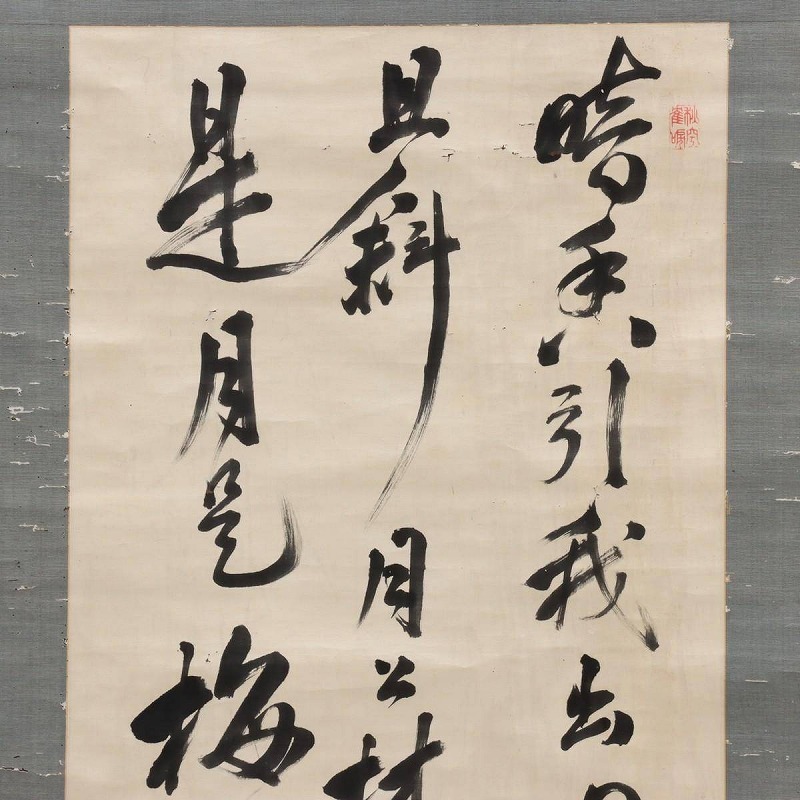 暗香引我出
且斜月公林
是月是梅